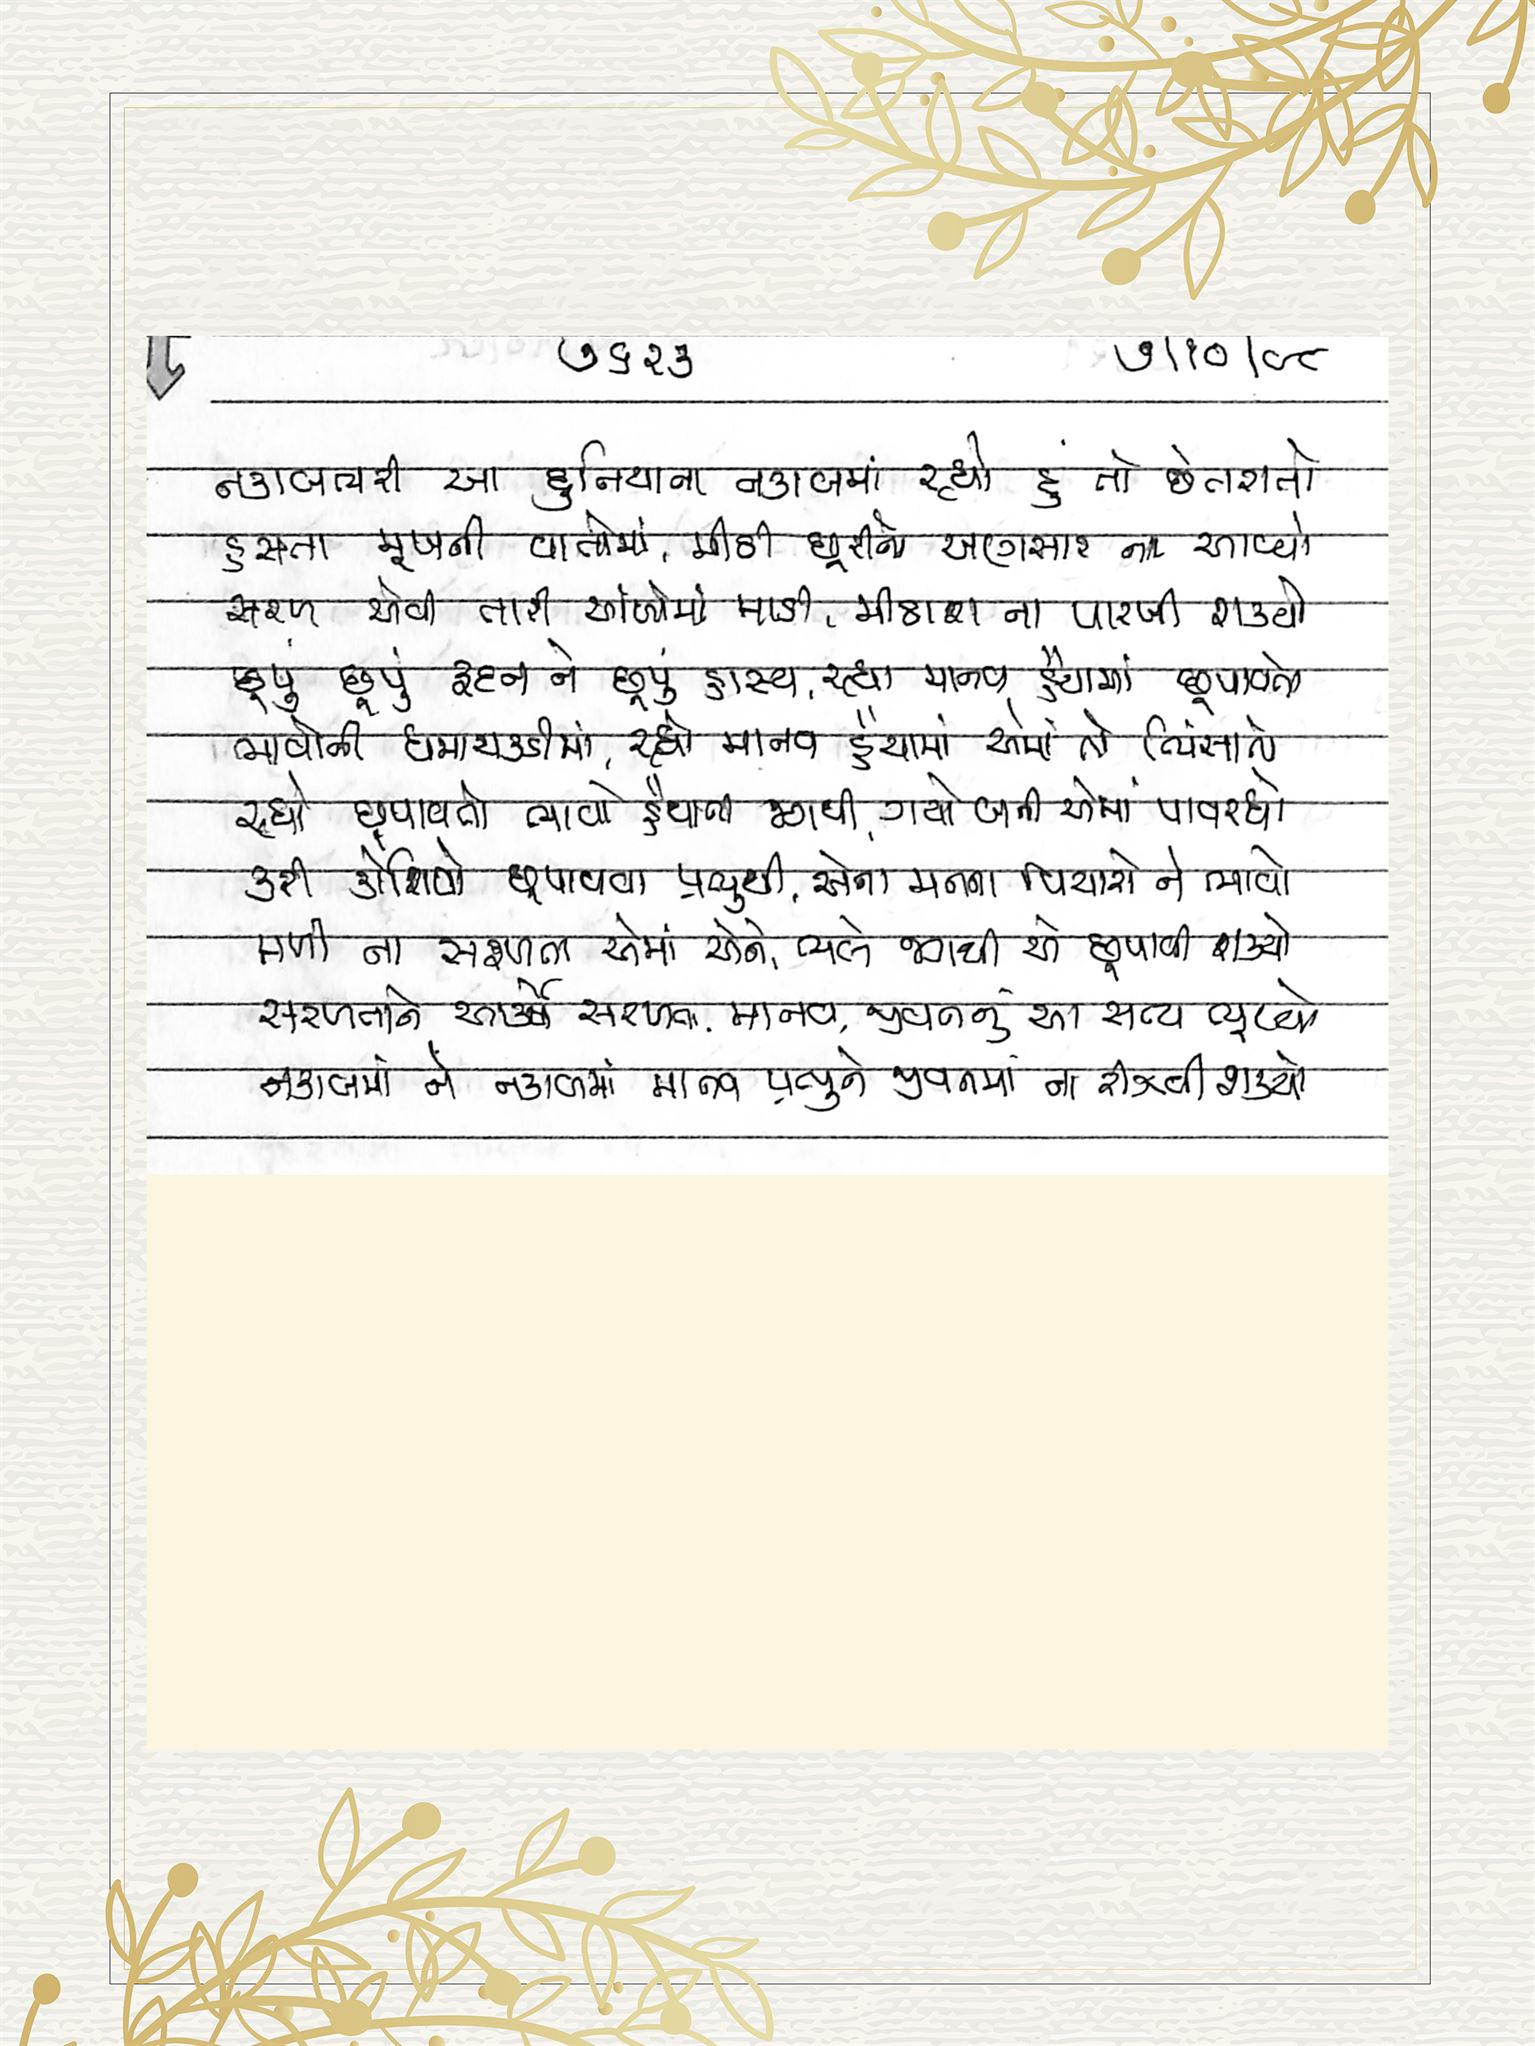 ૭૬૨૩ ૭/૧૦/૯૮
નકાબભરી આ દુનિયાના નકાબમાં રહ્યો હું તો છેતરાતો
હસતા મુખની વાતોમાં, મીઠી છૂરીનો અણસાર ના આવ્યો
સરળ એવી તારી આંખોમાં માડી, મીઠાશ ના પારખી શક્યો
છૂપું છૂપું રુદન ને છૂપું હાસ્ય, રહ્યા માનવ હૈયામાં છૂપાવતો
ભાવોની ધમાચકડીમાં, રહ્યો માનવ હૈયામાં એમાં તો
રહ્યો છૂપાવતો ભાવો હૈયાના જગથી, ગયો બની એમાં પાવરધો
કરી કોશિશો છૂપાવવા પ્રભુથી, એના મનના વિચારો ને ભાવો
મળી ના સફળતા એમાં એને, ભલે જગથી એ છૂપાવી શક્યો
સરળતાને સરળતા, માનવ, જીવનનું આ સત્ય ભૂલ્યો
નકાબમાં ને નકાબમાં માનવ પ્રભુને જીવનમાં ના રીઝવી શક્યો